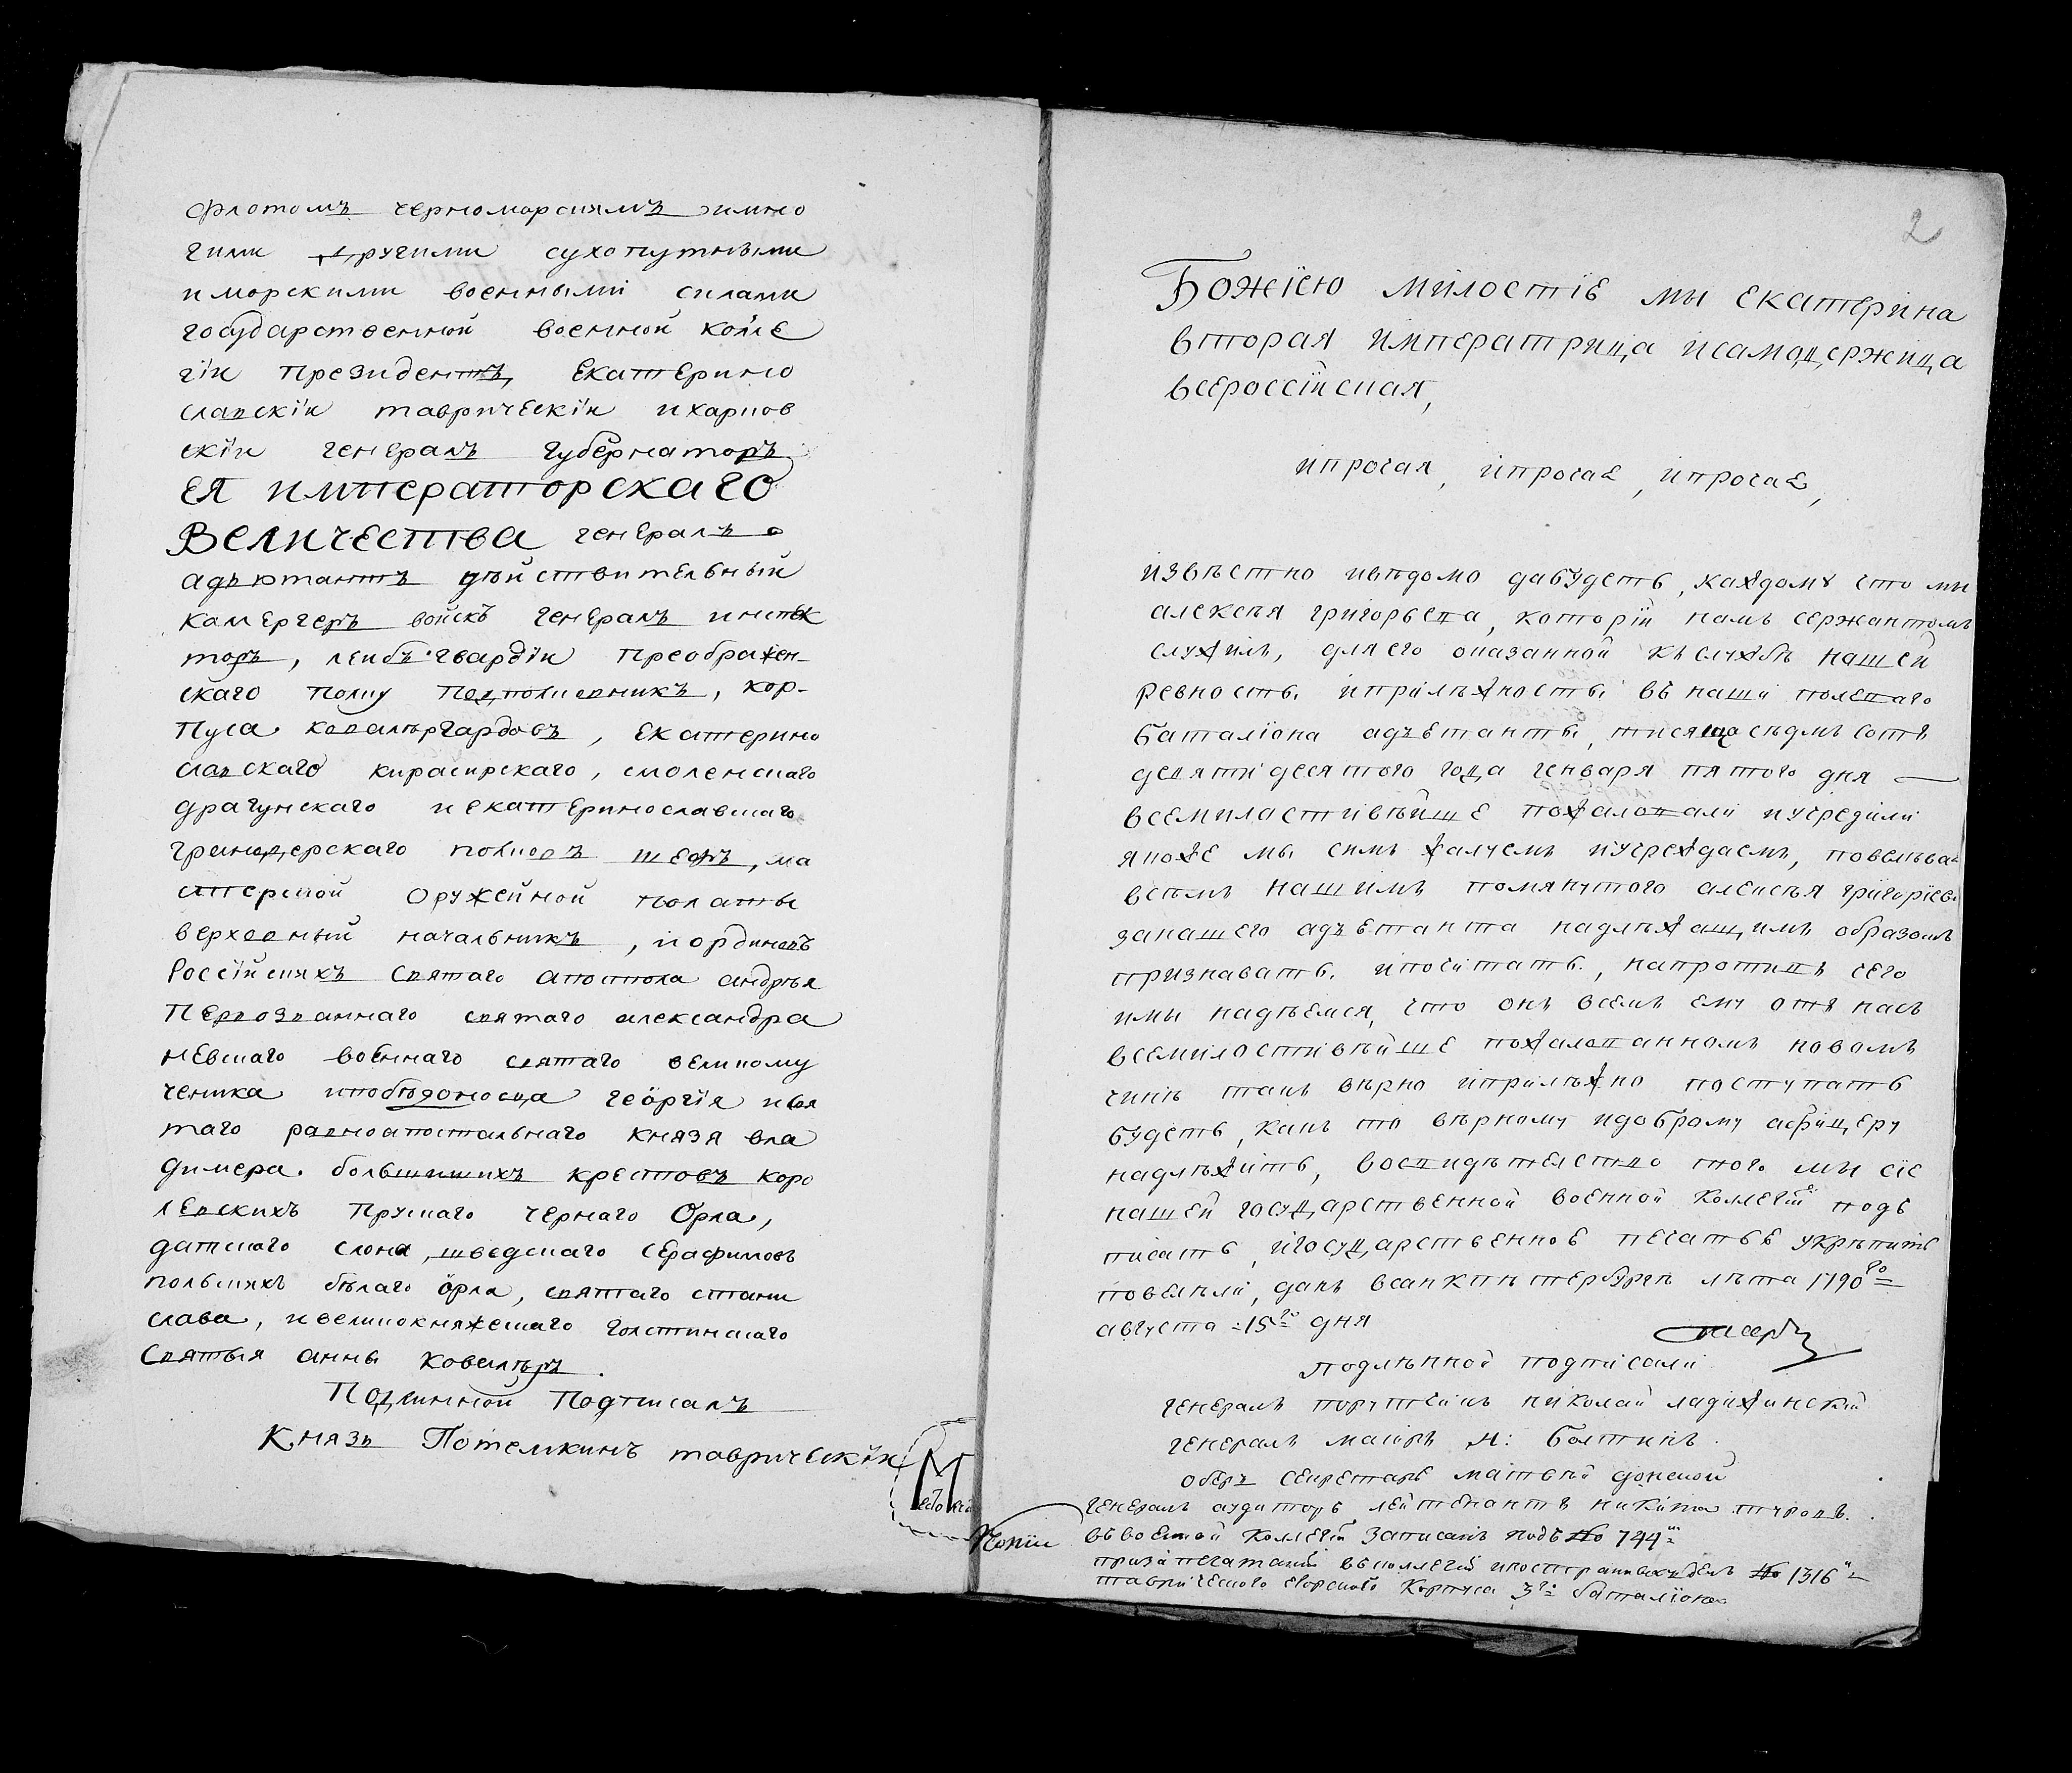 флотомъ черноморскимъ имно
гими другими сухопутными
и морскими военными силами
государственной военной колѣ
гіи президентъ, Екатерино
славскіи таврическіи и харков
скіи генералъ губернаторъ
ея императорскаго
Величества генералъ
адъютантъ дѣйствительный
камергеръ войскъ генералъ инспек
торъ, лейбъ гвардіи преображен-
скаго полку подполковникъ, кор-
пуса ковалѣргардовъ, екатерино
славскаго кирасирскаго, смоленскаго
драгунскаго и екатеринославскаго
гринодерскаго полковъ шефъ, ма
стерской оружейной полаты
верховный начальникъ, и ординовъ
Россійскихъ святаго апостола андрѣя
Первозваннаго святаго александра
невскаго военнаго святаго великому
ченика и победоносца георгія и свя
таго равноапостальнаго князя вла
димера. большихъ крестовъ коро
левскихъ прускаго чернаго Орла,
датскаго слона, шведскаго серафимовъ
польскихъ бѣлаго орла, святаго стани
слава, и великокняжескаго голстинскаго
Святыя анны ковалѣръ.
Подлинной подписалъ
Князь Потемкинъ таврическіи
2
Божіею милостіе мы екатерина
вторая императрица исамодержица
всероссійская,
ипрочая, ипрочае, ипрочае,
извѣстно ивѣдомо дабудетъ, каждому что мы
алексѣя григорьева, которіи намъ сержантомъ
служилъ, дляего оказанной къслужбѣ нашей
ревность. иприлѣжность. въ наши полеваго
баталіона адъетанты, тисяща сѣдмъ сотъ
девятідесятого года генваря пятого дня —
всемиластивѣйше пожаловали иучредили
якоже мы симъ жалуемъ иучреждаемъ, повелѣва
всѣмъ нашимъ помянутого алексѣя григоріева
занашего адъетанта надлѣжащимъ образомъ
признавать. ипочитать., напротивъ чего
имы надѣемся, что онъ всемъ ему отъ насъ
всемилостивѣйше пожалованномъ новомъ
чинѣ такъ вѣрно иприлѣжно поступать
будетъ, какъ то вѣрному идоброму афицеру
надлѣжитъ, восвидѣтелство того мы сіе
нашей государственной военной коллегіи подъ
писать, игосударственнов печатье укрѣпить
повелѣли, данъ всанктпѣтербургѣ лѣта 1790го
августа 15го дня
подлѣнной подписали
генералъ порутчикъ николай ладиженскій
генералъ маіоръ И: болтинъ.
оберъ секретарь матвѣй донской
генералъ аудиторъ лейтенантъ никита туровъ.
Копіи въ военной коллегіи записанъ подъ № 744
призапечатаніи въколлегіи иностранныхъ дѣлъ № 1316
таврическаго егорскаго корпуса 3го баталіона